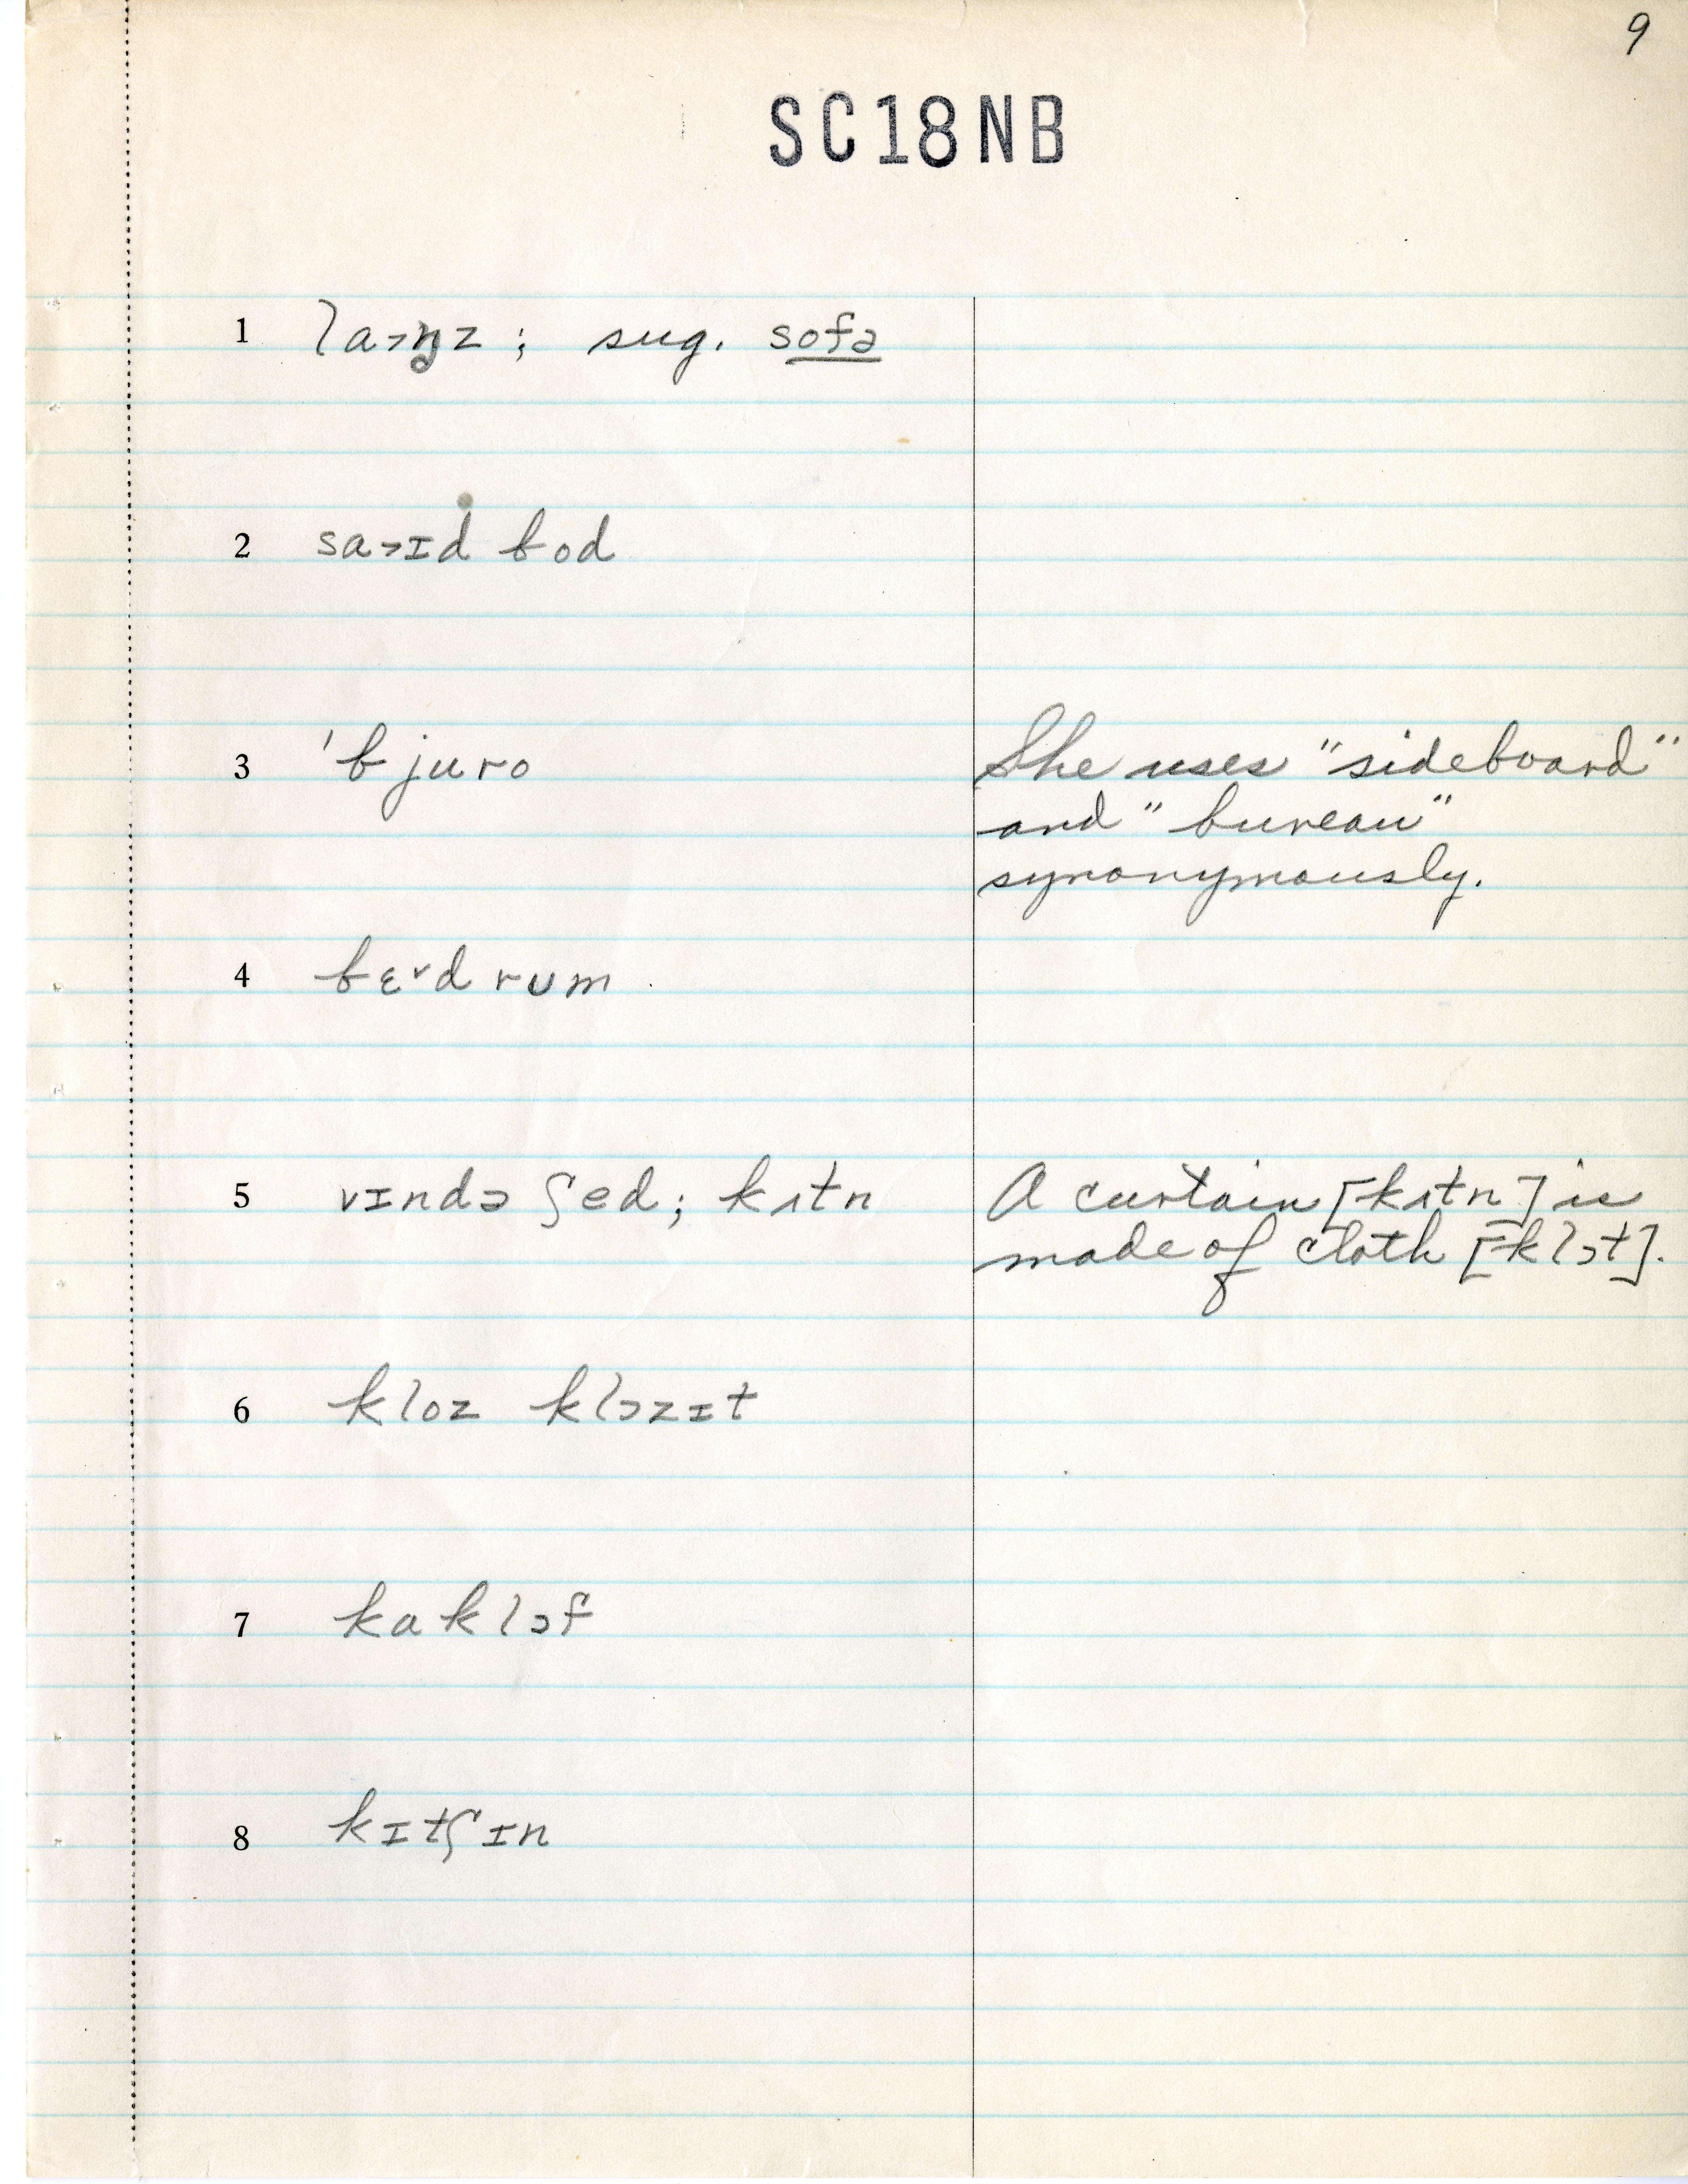 9
SC18NB
1 la˃ŋz ; sug. sofə
2 sa˃ɪd bod
3 'bjuro
She uses "sideboard"
and "bureau"
synonymously.
4 bɛ˅d rum
5 vɪndə ʃed; kʌtn
A curtain [kʌtn] is
made of cloth [klɔt].
6 kloz klɔzɪt
7 kaklɔf
8 kɪtʃɪn